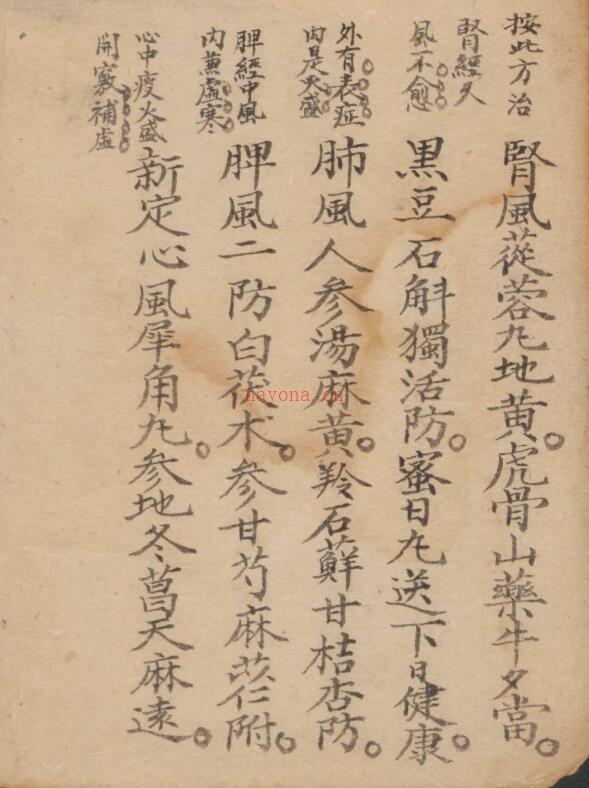 按此方治
腎經久
風不愈
腎風蓯蓉丸地黄。虎骨山藥牛夕當。
黒豆石斛獨活防。蜜日丸送下日健康。
外有表症
内是火盛
肺風人参湯麻黄。羚石蘇甘桔杏防。
脾經中風
内兼虚寒
脾風二防白茯术。参甘芍麻苡仁附。
心中痰火盛
開竅補虚
新定心風犀角丸。参地冬菖天麻遠。
nayona.cn